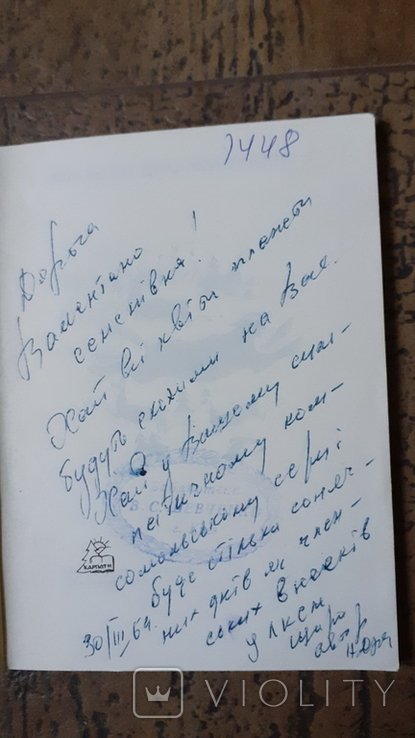 7448
Дорога
Валентино
семенівна!
Хай всі квіти планети
будуть схожими на Вас.
Хай у Вашому сим-
патичному ком-
сомольському серці
буде стільки соняч-
них днів як член-
ських внесків
у лксм
щиро
автор
30/III 64.
КАРПАТИ
VIOLITY